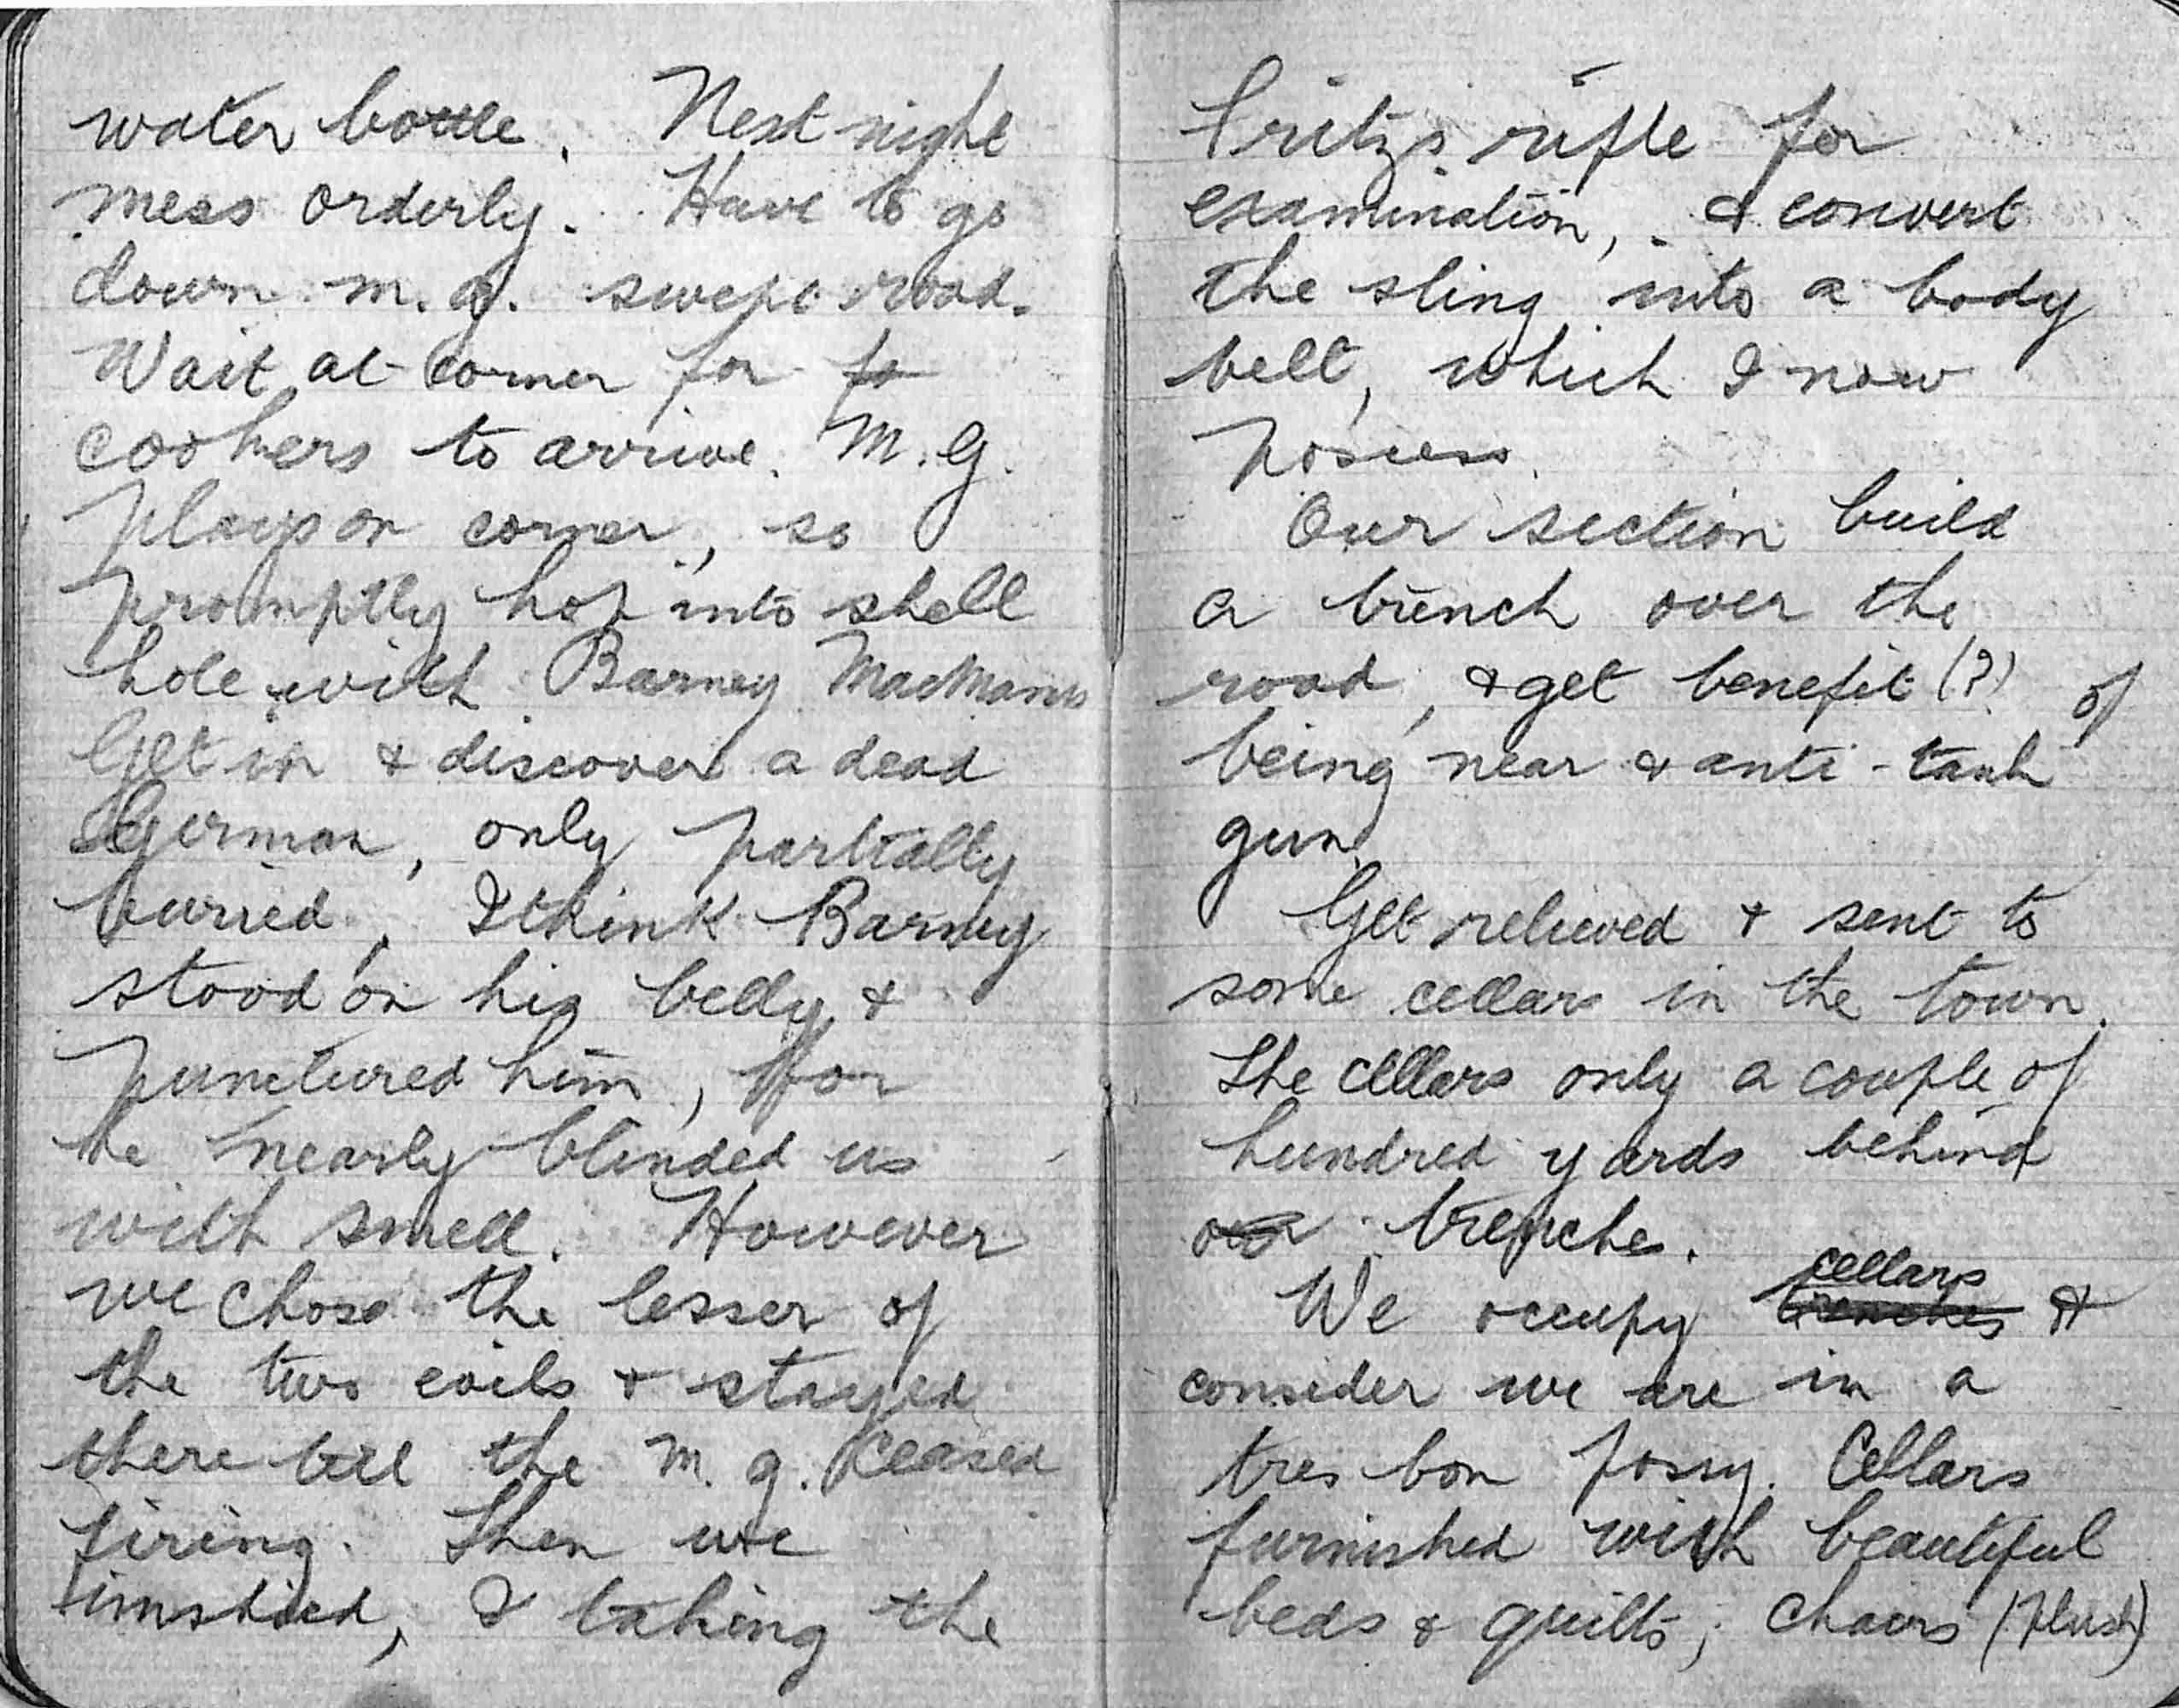 water bottle. Next night
mess orderly. Have to go
down m.g. swept road.
Wait at corner for fo
cookers to arrive. M.G.
plays on corner, so
promptly hop into shell
hole with Barney MacManus
Get in & discover a dead
German, only partially
buried. I think Barney
stood on his belly &
punctured him, for
he nearly blinded us
with smell. However
we chose the lesser of
the two evils & stayed
there till the m.g. ceased
firing. Then we
imshied, I taking the
Fritz's rifle for
examination, & convert
the sling into a body
belt, which I now
possess.
Our section build
a trench over the
road, & get benefit (?) of
being near a anti-tank
gun.
Get relieved & sent to
some cellars in the town.
The cellars only a couple of
hundred yards behind
trenches.
We occupy cellars trenches &
consider we are in a
tres bon possy. Cellars
furnished with beautiful
beds & quilts, chairs (plush)